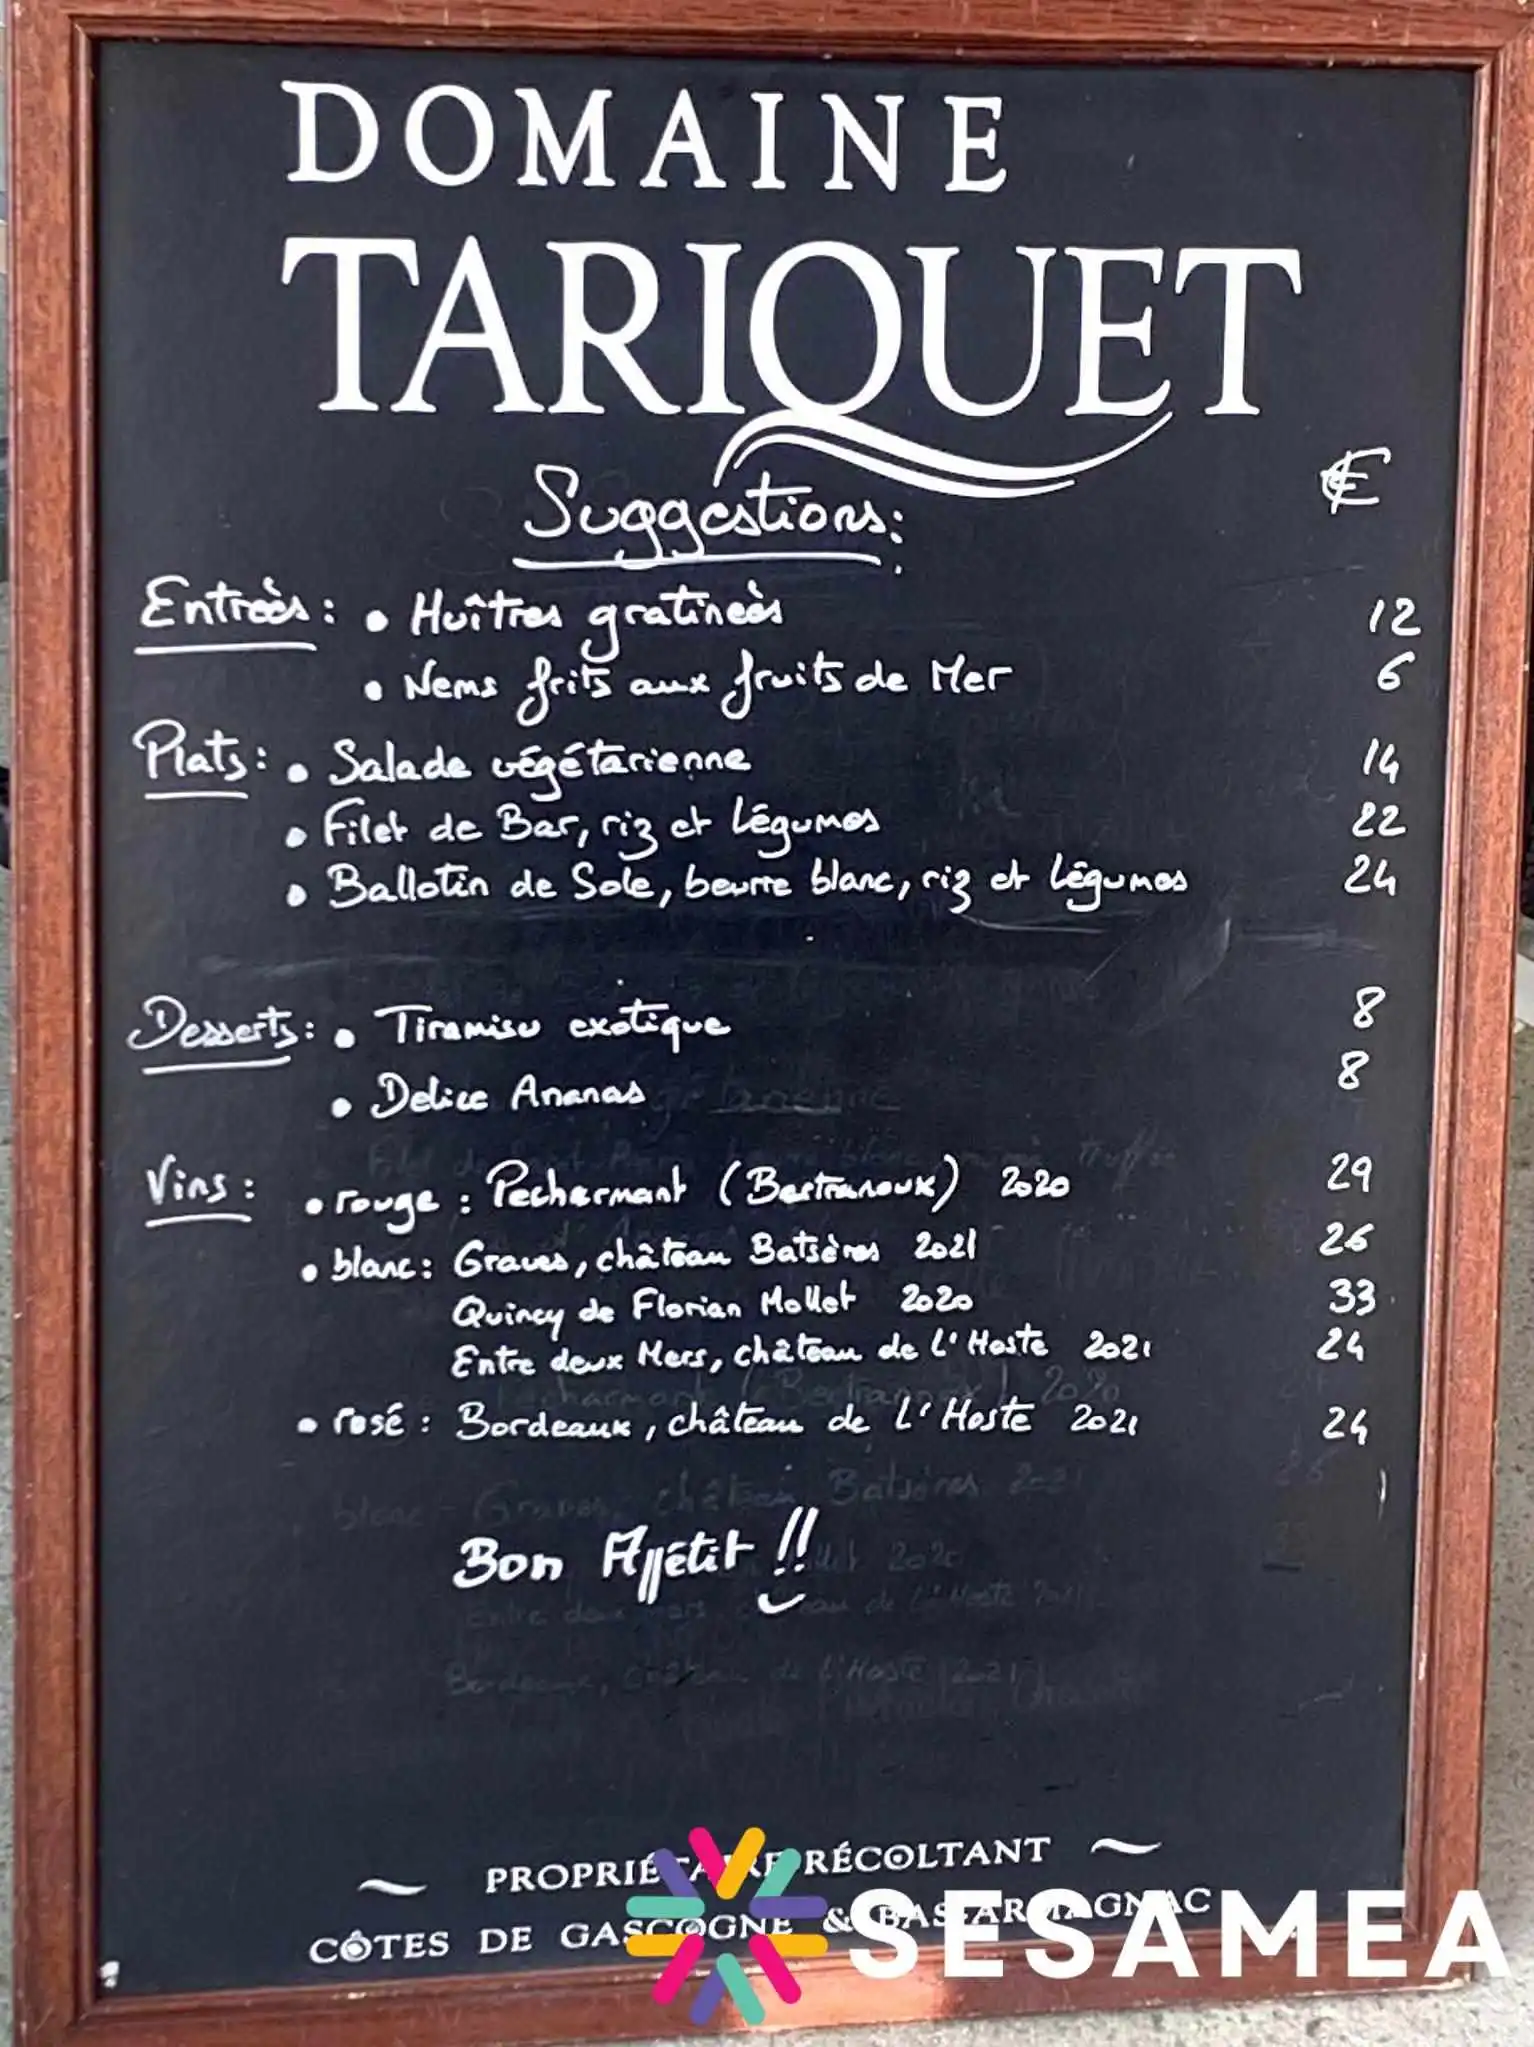 DOMAINE
TARIQUET
Suggestions: €
Entrées: • Huîtres gratinées 12
• Nems frits aux fruits de Mer 6
Plats: • Salade végétarienne 14
• Filet de Bar, riz et légumes 22
• Ballotin de Sole, beurre blanc, riz et légumes 24
Desserts: • Tiramisu exotique 8
• Delice Ananas 8
Vins: • rouge: Pecharmant (Bertranoux) 2020 29
• blanc: Graves, château Batsères 2021 26
Quincy de Florian Mollet 2020 33
Entre deux Mers, château de L'Hoste 2021 24
• rosé: Bordeaux, château de L'Hoste 2021 24
Bon Appétit!!
~ PROPRIÉTAIRE RÉCOLTANT ~
CÔTES DE GASCOGNE & BAS-ARMAGNAC
SESAMEA